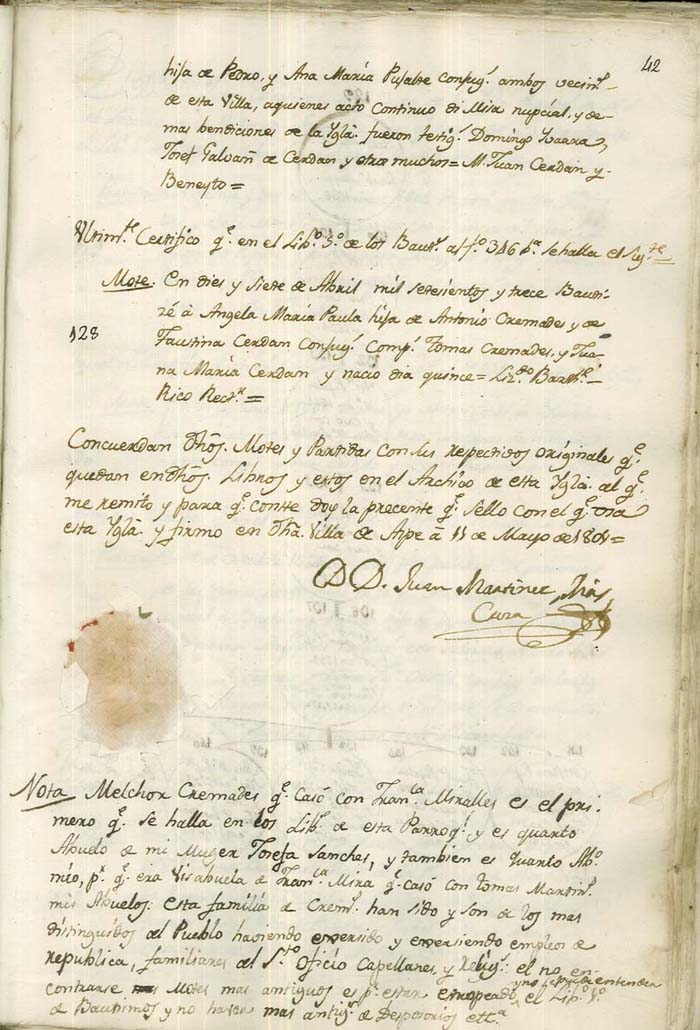 42
hija de Pedro, y Ana María Pujalte Conjug.s ambos vecin.s
de esta Villa, aquienes acto continuo di Misa nupcial, y de-
mas bendiciones de la Ygl.a fueron testig.s Domingo Ybarra,
Josef Galvañ de Cerdan y otros muchos= M. Juan Cerdán y
Beneyto=
Ultim.te Certifico q.e en el Lib.o 3.o de los Baut.s al f.o 346 b.a se halla el Sig.te=
Mote. En dies y siete de Abril mil setesientos y trece Bauti-
zé à Angela María Paula hija de Antonio Cremades y de
128
Faustina Cerdan Conjug.s Comp.s Tomas Cremades, y Jua-
na María Cerdan y nacio dia quince= Liz.do Barth.e
Rico Rect.r=
Concuerdan dhos. Motes y Partidas con sus respectibos originales q.e
quedan en dhos. Libros y estos en el Archibo de esta Ygl.a al q.e
me remito y para q.e conste doy la precente q.e sello con el q.e usa
esta Ygl.a y firmo en dha. Villa de Aspe à 11 de Mayo de 1801=
D D. Juan Martinez
Cura
Nota Melchor Cremades q.e Casó con Fran.ca Miralles es el pri-
mero q.e se halla en los Lib.s de esta Parroq.l y es quarto
Abuelo de mi Muger Josefa Sanches, y tambien es quarto Ab.o
mio, p.r q.e era Visabuela de Fran.ca Mira q.e Casó con Tomas Martin.s
mis Abuelos: esta familia de Crem.s han sido y son de los mas
distinguidos del Pueblo haviendo exersido y exersiendo empleos de
republica, familiares del S.to Oficio Capellanes, y Relig.s: el no en-
contrarse Motes mas antiguos es p.r estar estropeado y no se puede entender el Lib.o 1.o
de Bautismos y no haver mas antig.s de Desposorios etc.a